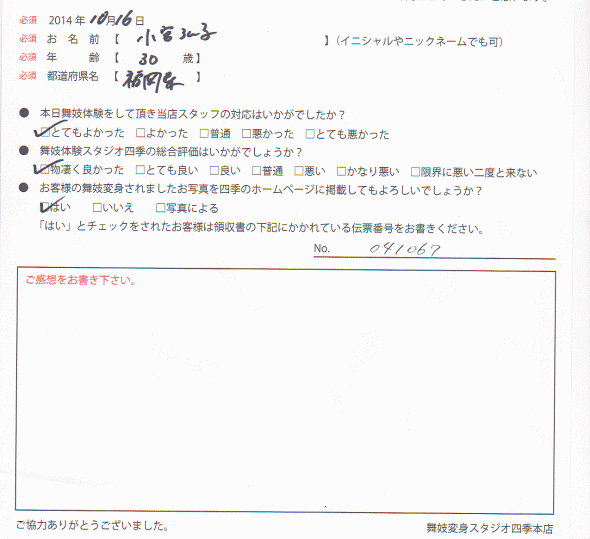 必須 2014年10月16日
必須 お名前【 小宮弘子 】(イニシャルやニックネームでも可)
必須 年齢【 30 歳】
必須 都道府県名【 福岡県 】
● 本日舞妓体験をして頂き当店スタッフの対応はいかがでしたか?
☑とてもよかった □よかった □普通 □悪かった □とても悪かった
● 舞妓体験スタジオ四季の総合評価はいかがでしょうか?
☑物凄く良かった □とても良い □良い □普通 □悪い □かなり悪い □限界に悪い二度と来ない
● お客様の舞妓変身されましたお写真を四季のホームページに掲載してもよろしいでしょうか?
☑はい □いいえ □写真による
「はい」とチェックをされたお客様は領収書の下記にかかれている伝票番号をお書きください。
No. 041067
ご感想をお書き下さい。
ご協力ありがとうございました。 舞妓変身スタジオ四季本店